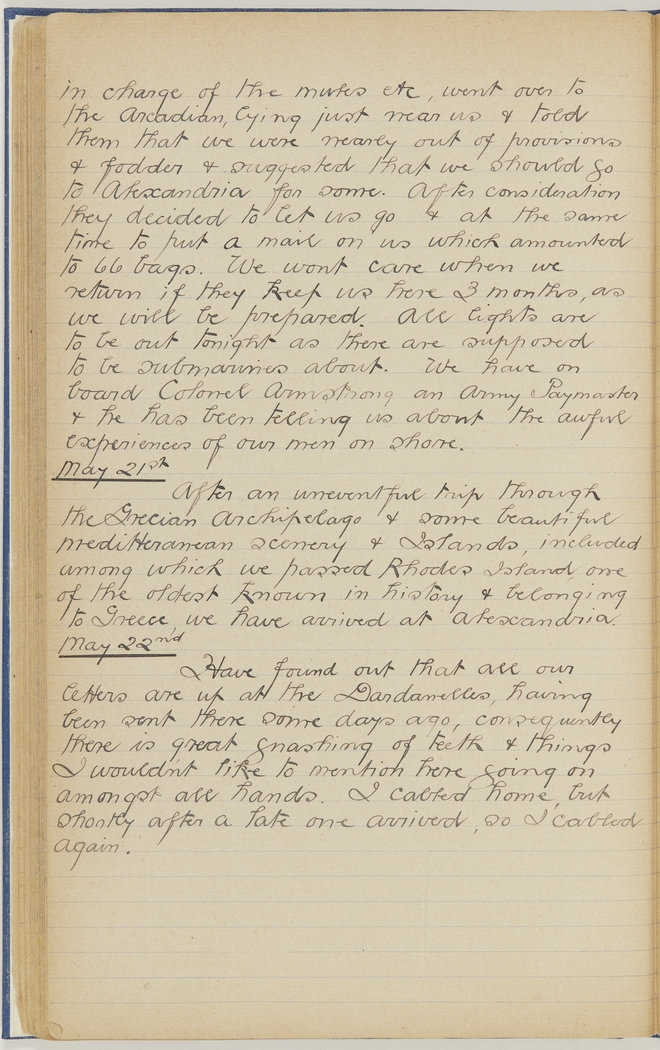 in charge of the mules etc, went over to
the Arcadian, lying just near us & told
them that we were nearly out of provisions
& fodder & suggested that we should go
to Alexandria for some. After consideration
they decided to let us go & at the same
time to put a mail on us which amounted
to 66 bags. We wont care when we
return if they keep us here 3 months, as
we will be prepared. All lights are
to be out tonight as there are supposed
to be submarines about. We have on
board Colonel Armstrong an Army Paymaster
& he has been telling us about the awful
experiences of our men on shore.
May 21st
After an uneventful trip through
the Grecian Archipelago & some beautiful
mediterranean scenery & Islands, included
among which we passed Rhodes Island, one
of the oldest known in history & belonging
to Greece, we have arrived at Alexandria.
May 22nd
Have found out that all our
letters are up at the Dardanelles, having
been sent there some days ago, consequently
there is great gnashing of teeth & things
I wouldn't like to mention here going on
amongst all hands. I cabled home, but
shortly after a late one arrived, so I cabled
again.